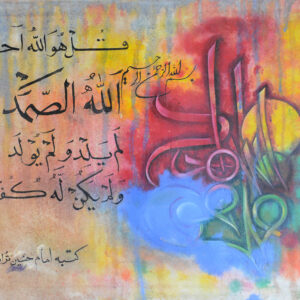 بسم الله الرحمن الرحيم
قُلْ هُوَ اللّٰهُ اَح
اَللّٰهُ الصَّمَدُ
لَمْ يَلِدْ وَلَمْ يُولَد
وَلَمْ يَكُنْ لَّهُ كُف
كتبه امام حسين